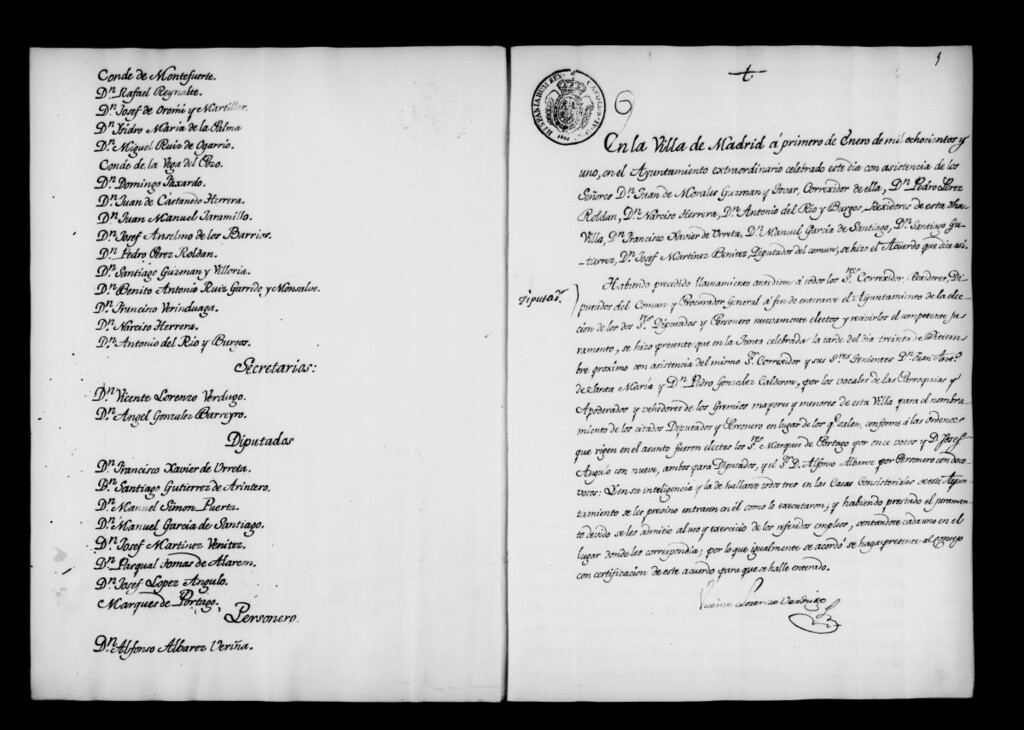 Conde de Montefuerte.
Dn. Rafael Reynalte.
Dn. Josef de Oromí y Martiller.
Dn. Isidro María de la Palma
Dn. Miguel Ruiz de Ogarrio.
Conde de la Vega del Pozo.
Dn. Domingo Faxardo.
Dn. Juan de Castanedo Herrera.
Dn. Juan Manuel Jaramillo.
Dn. Josef Anselmo de los Barrios.
Dn. Pedro Perez Roldan.
Dn. Santiago Guzman y Villoria.
Dn. Benito Antonio Ruiz Garrido y Monsalve.
Dn. Francisco Verinduaga.
Dn. Narciso Herrera.
Dn. Antonio del Rio y Burgos.
Secretarios:
Dn. Vicente Lorenzo Verdugo.
Dn. Angel Gonzalez Barreyro.
Diputados
Dn. Francisco Xavier de Urreta.
Dn. Santiago Gutierrez de Arintero.
Dn. Manuel Simon Puerta.
Dn. Manuel Garcia de Santiago.
Dn. Josef Martinez Venitez.
Dn. Pasqual Tomas de Alarem.
Dn. Josef Lopez Angulo.
Marques de Portago.
Personero.
Dn. Alfonso Albarez Veriña.
En la Villa de Madrid á primero de Enero de mil ochocientos y
uno, en el Ayuntamiento extraordinario celebrado este dia con asistencia de los
Señores Dn. Juan de Morales Guzman y Tovar, Correxidor de ella, Dn. Pedro Perez
Roldan, Dn. Narciso Herrera, Dn. Antonio del Rio y Burgos, Rexidores de esta dha
Villa, Dn. Francisco Xavier de Urreta, Dn. Manuel Garcia de Santiago, Dn. Santiago Gu-
-tierrez, Dn. Josef Martinez Benitez, Diputados del comun, se hizo el Acuerdo que dice asi.
Diputados.
Habiendo precedido llamamiento antediem á todos los Sres. Correxidor, Rexidores, Di-
putados del Comun y Procurador General á fin de entrarse el Ayuntamiento de la elec-
cion de los dos Sres. Diputados y Personero nuevamente electos y recivirlos el competente ju-
ramento, se hizo presente que en la Junta celebrada la tarde del dia treinta de Diciem-
bre proximo con asistencia del mismo Sr. Correxidor y sus Sres. Tenientes Dn. Juan Ant.o
de Santa María y Dn. Pedro Gonzalez Calderon, por los vocales de las Parroquias y
Apoderados y vehedores de los Gremios mayores y menores de esta Villa para el nombra-
miento de los citados Diputados y Personero en lugar de los q.e salen, conforme á las ordenes
que rigen en el asunto fueron electos los Sres. Marques de Portago por once votos y D. Josef
Angulo con nueve, ambos para Diputados, y el Sr. D. Alfonso Albarez por Personero con doce
votos: Y en su inteligencia y la de hallarse todos tres en las Casas Consistoriales de este Ayun-
tamiento se les previno entrasen en él como lo executaron; y habiendo prestado el juramen-
to devido se les admitio al uso y exercicio de los referidos empleos, sentandose cada uno en el
lugar donde les correspondia; por lo que igualmente se acordó se haga presente al Consejo
con certificacion de este acuerdo para que se halle enterado.
Vicente Lorenzo Verdugo